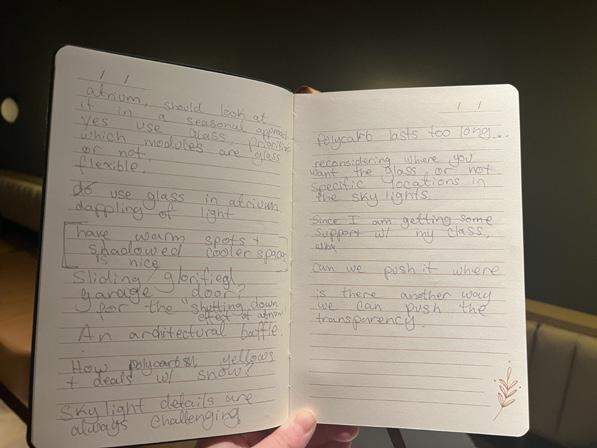 / /
atrium, should look at
it in a seasonal approach
yes use glass. prioritize
which modules are glass
or not.
flexible.
do use glass in atrium
dappling of light
have warm spots +
shadowed cooler space
is nice
Sliding glorified
garage door?
for the "shutting down
effect of atrium
An architectural baffle.
How polycarb yellows
+ deals w/ snow?
Skylight details are
always challenging
/ /
Polycarb lasts too long...
reconsidering where you
want the glass or not
specific locations in
the sky lights.
Since I am getting some
support w/ my class,
why
can we push it where
is there another way
we can push the
transparency.